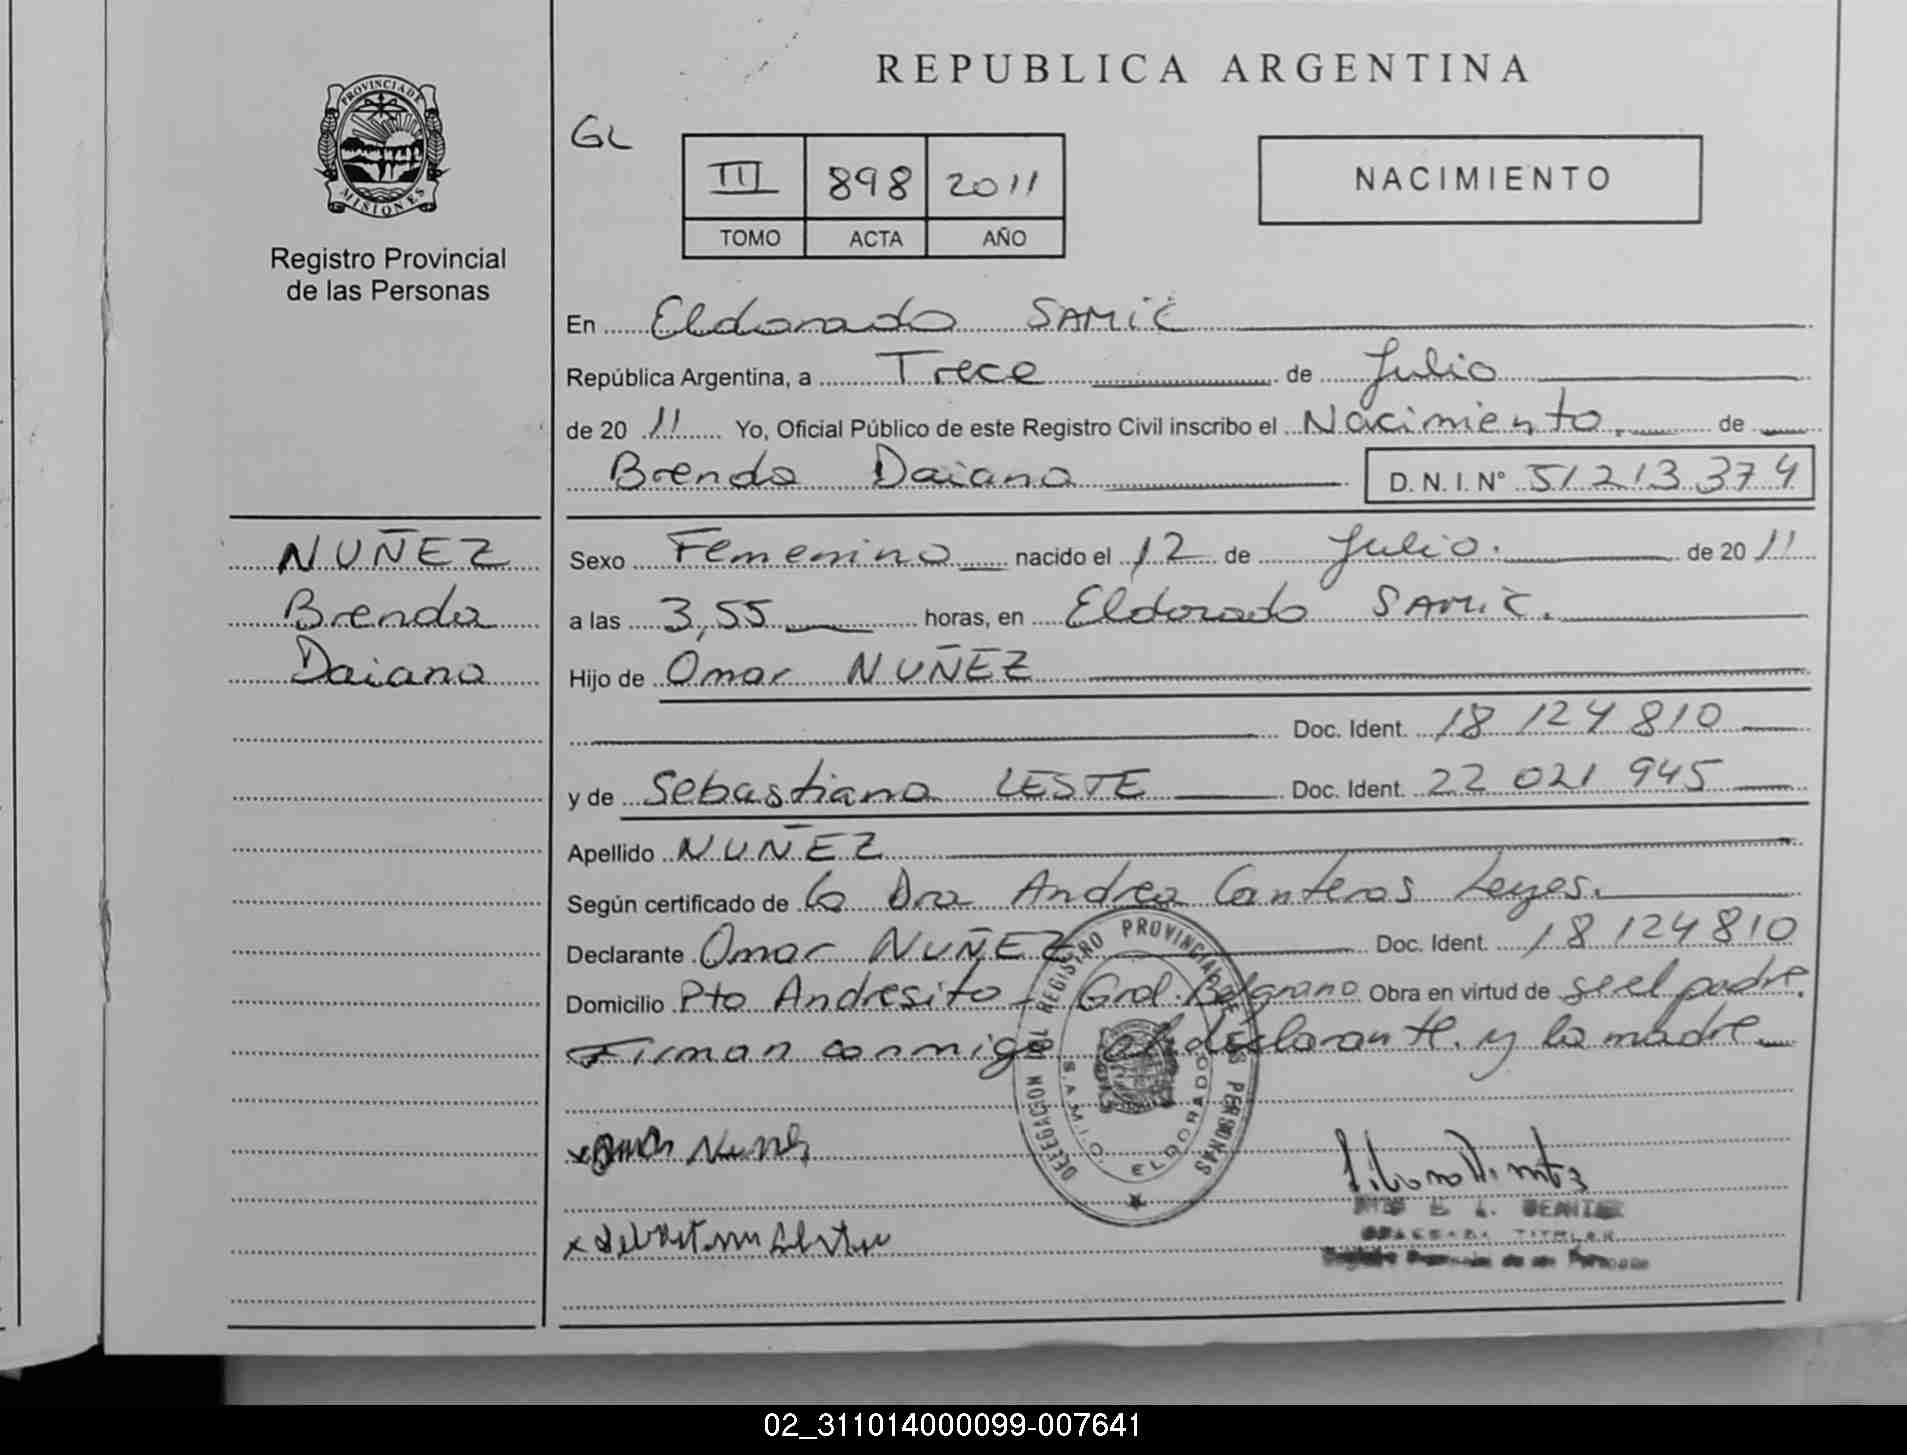 REPUBLICA ARGENTINA
PROVINCIA DE
MISIONES
Registro Provincial
de las Personas
GL
III 898 2011
TOMO ACTA AÑO
NACIMIENTO
En Eldorado SAMIC
República Argentina, a Trece de Julio
de 2011 Yo, Oficial Público de este Registro Civil inscribo el Nacimiento. de
Brenda Daiana D.N.I. Nº 51 213 374
NUÑEZ
Brenda
Daiana
Sexo Femenino nacido el 12 de Julio. de 2011
a las 3,55 horas, en Eldorado SAMIC.
Hijo de Omar NUÑEZ
Doc. Ident. 18 124 810
y de Sebastiana LESTE Doc. Ident. 22 021 945
Apellido NUÑEZ
Según certificado de la Dra Andrea Canteros Leyes.
Declarante Omar NUÑEZ Doc. Ident. 18 124 810
Domicilio Pto Andresito - Gral. Belgrano Obra en virtud de ser el padre.
Firman conmigo el declarante. y la madre
DELEGACION DEL REGISTRO PROVINCIAL DE LAS PERSONAS
S.A.M.I.C. ELDORADO
x Nuñez
x
TITULAR
02_311014000099-007641